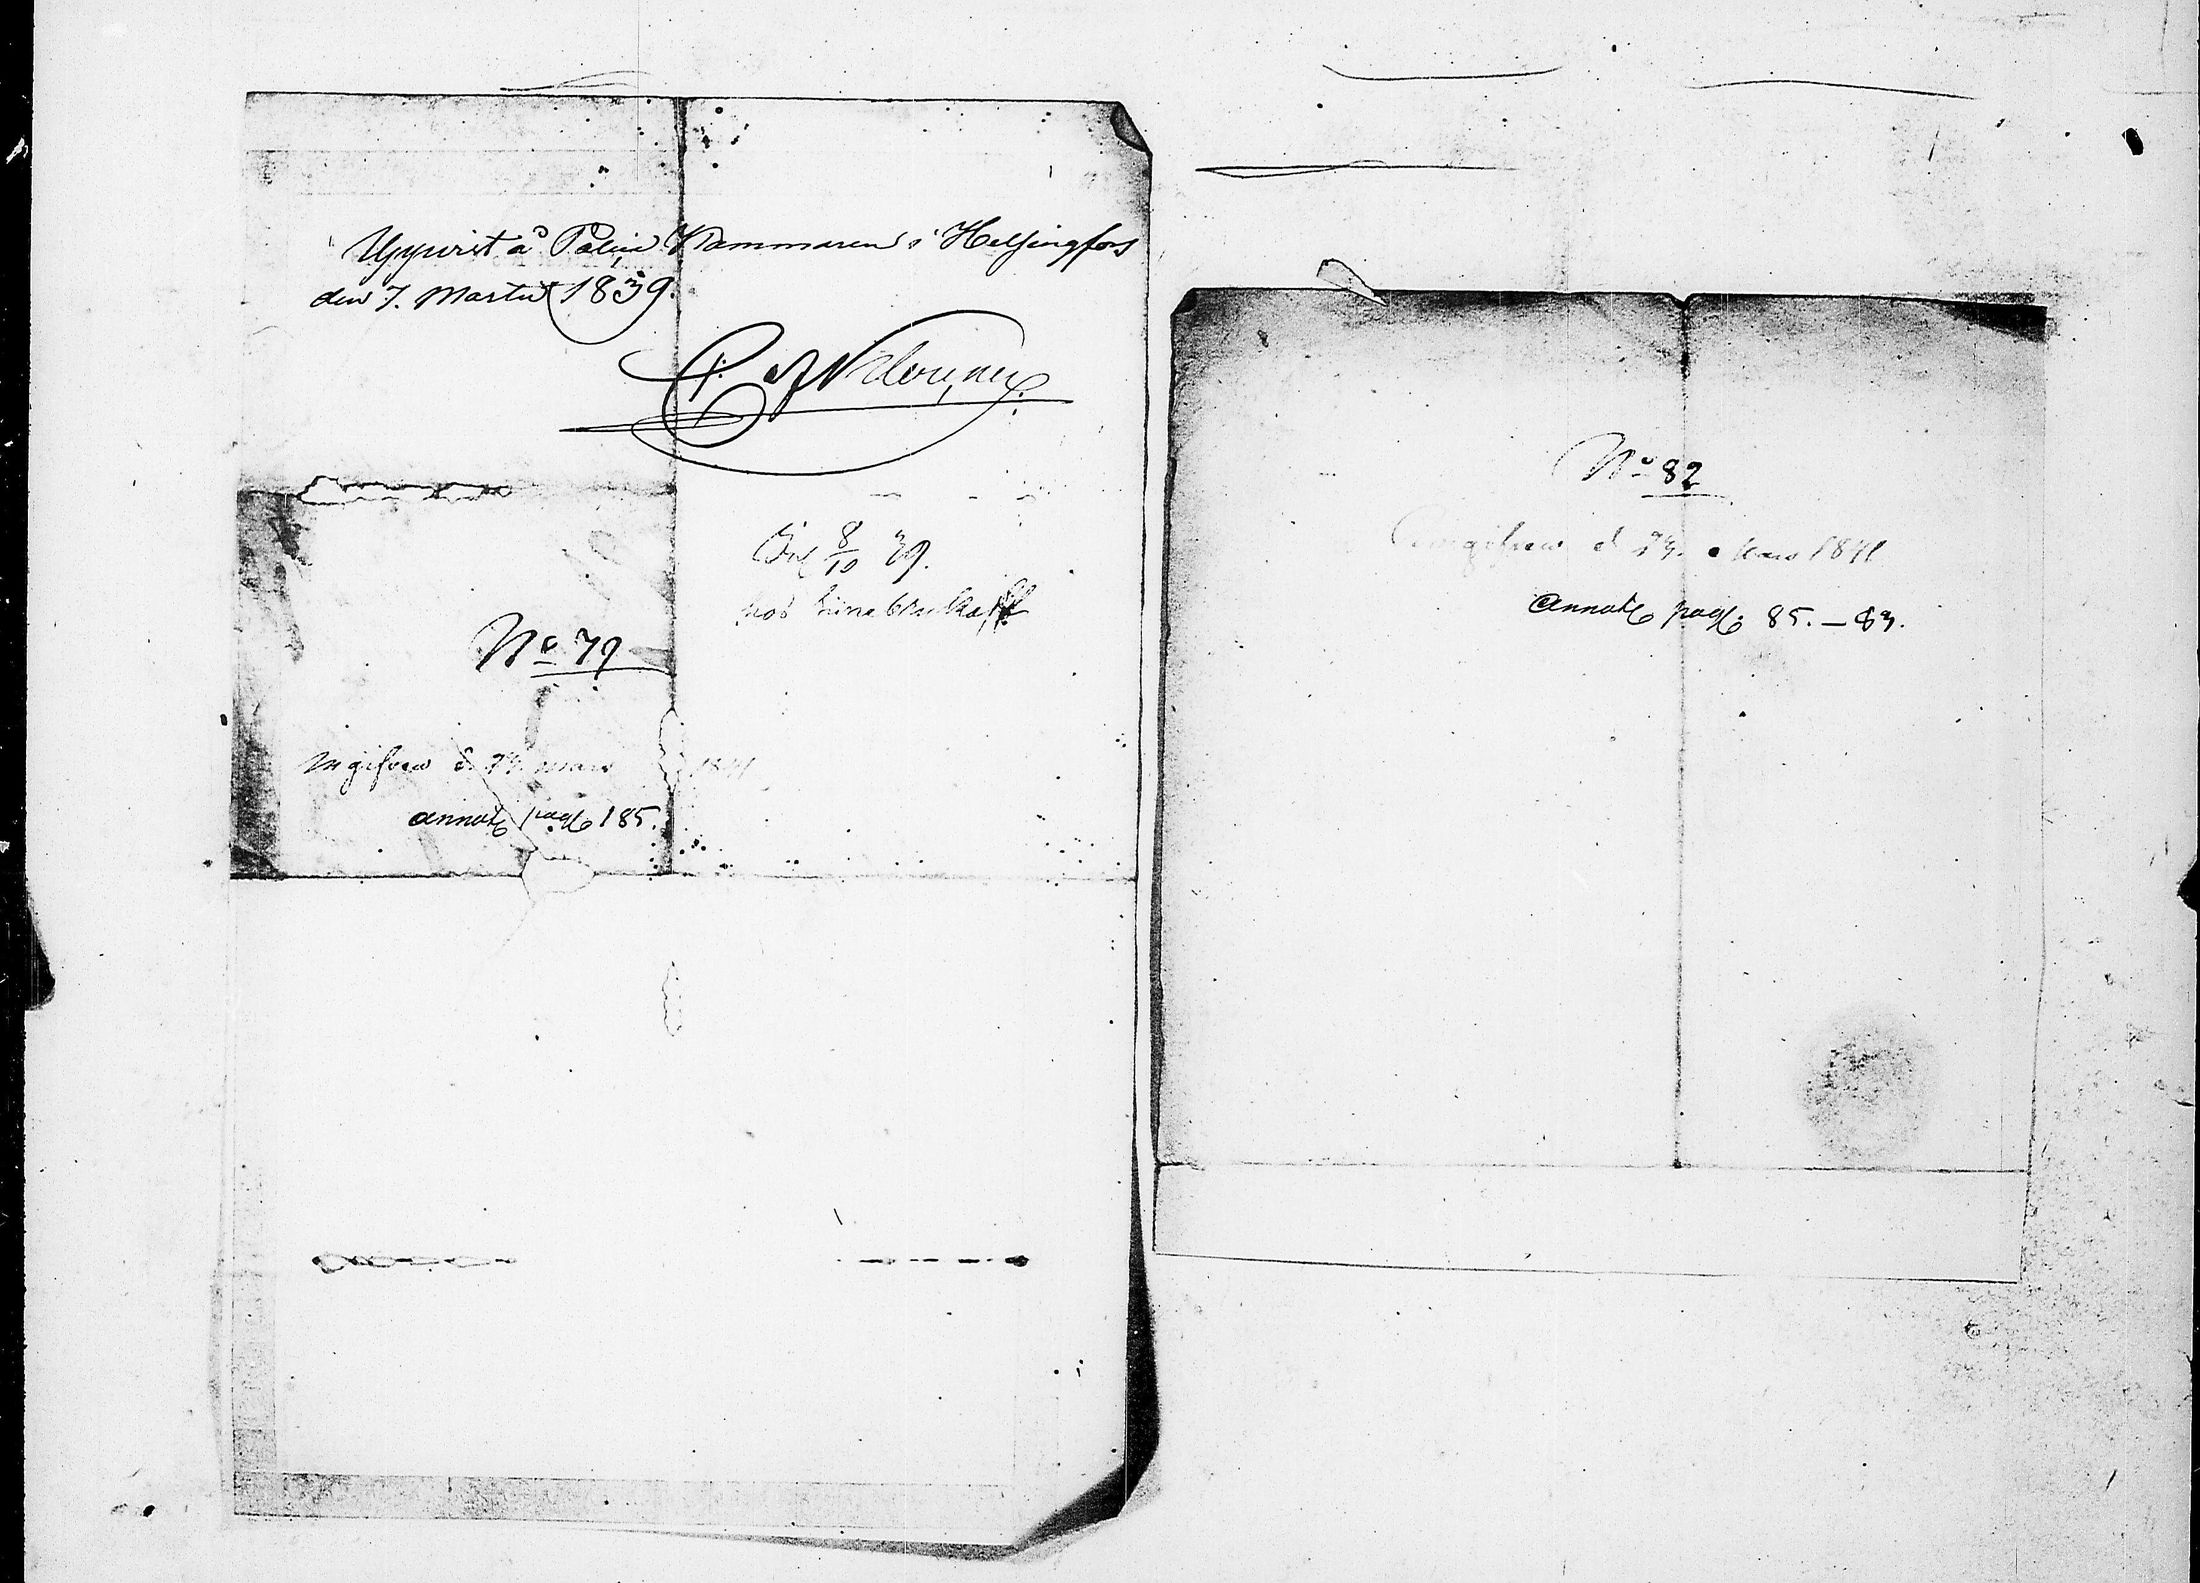 Uppvist å Police Kammaren i Helsingfors
den 7. Martii 1839.
8/10 39.
hos
No 79
Ingifven d. mars 1841
annot pag 185.
No 82
Ingifven d. Mars 1841
Annot pag 85. – 83.